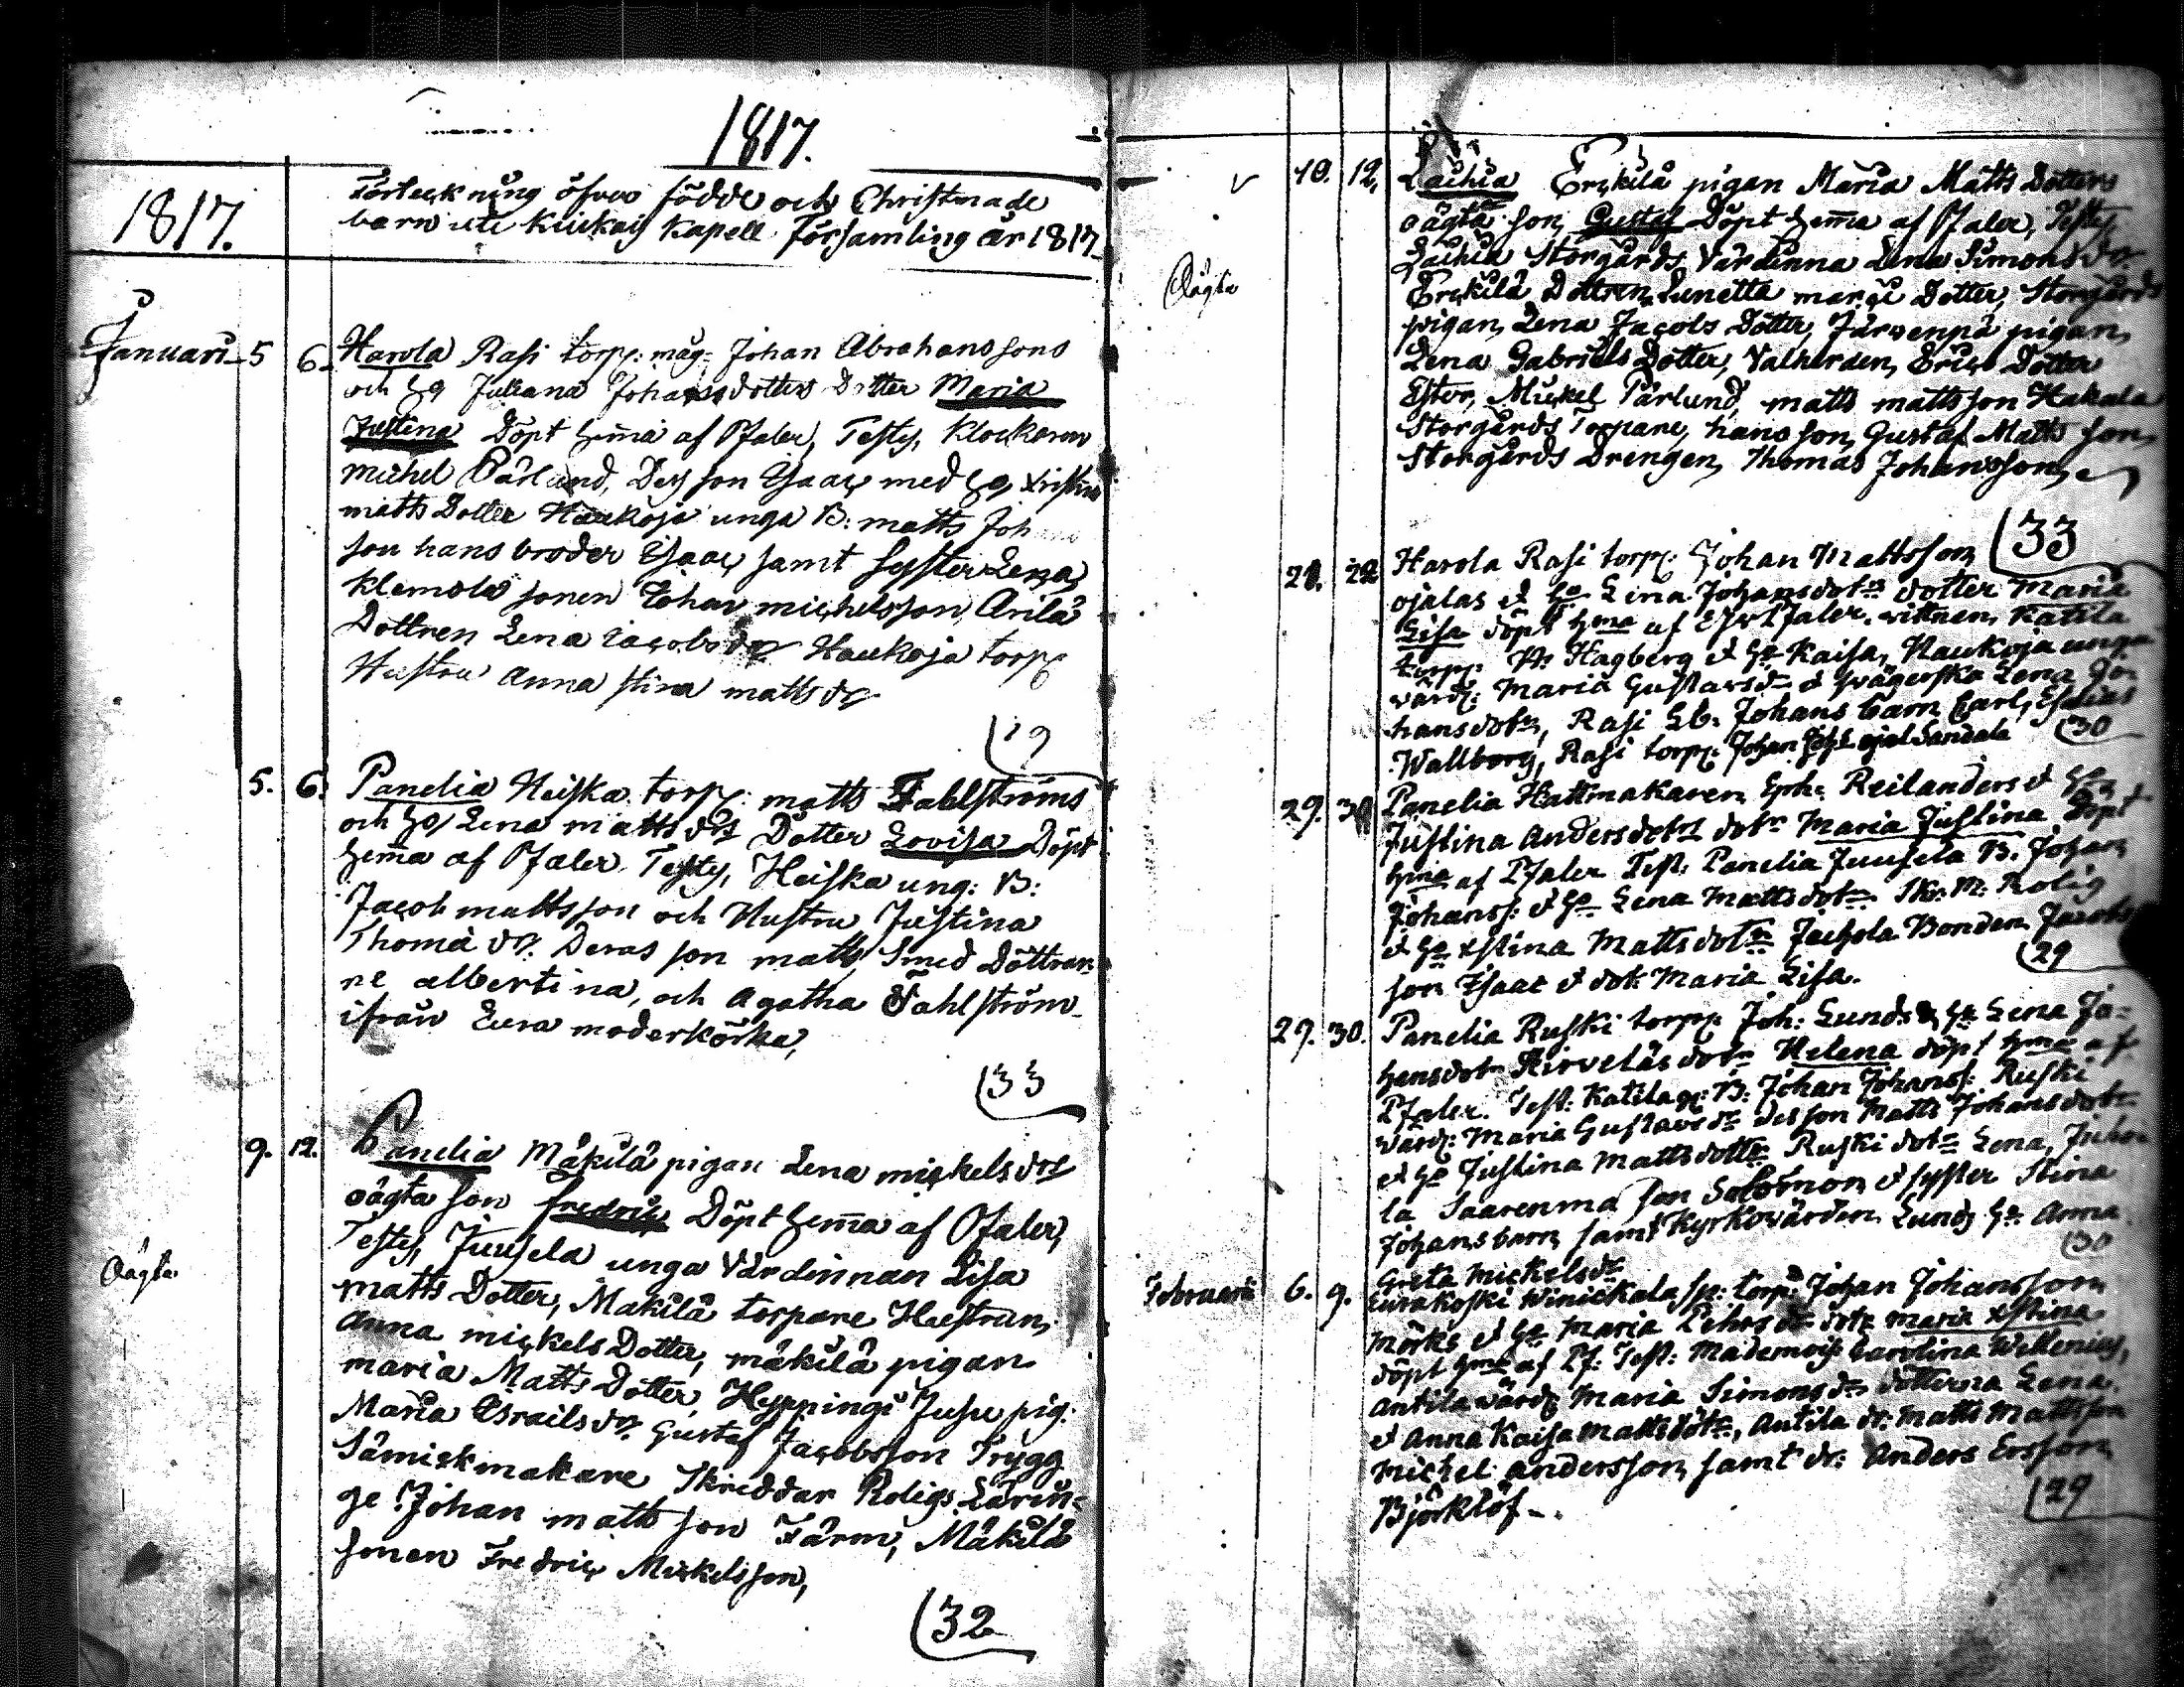 1817.
1817.
Förteckning öfver födde och Christnade
barn uti Kiukais Kapell Församling år 1817
Januari 5 6. Harola Rasi torp: måg: Johan Abrahamssons
och Ho Juliana Johansdotters Dotter Maria
Justina Döpt hema af Pfaler, Testes, Klockaren
Michel Pärlund, Des son Isaac med Ho
matts Dotter Haukoja unga B: matts Joh
son hans broder Isaac samt Syster Lena,
Klemola sonen Johan michelsson, Arila
Dottren Lena Jacobs dr Haukoja torp
Hustru Anna stina matts dr
5. 6. Panelia Heiska torp: matts Fahlströms
och Ho Lena matts drs Dotter Lovisa Döpt
hema af Pfaler. Testes, Heiska ung: B:
Jacob mattsson och Hustru Justina
Thoma dr. Deras son matts, Smed Döttrar
ne albertina, och Agatha Fahlström
ifrån Eura moderkörka,
(33
9. 12. Panelia Mäkilä pigan Lena mickels drs
oägta son fredric Döpt hema af Pfaler,
Testes, Juusela unga Värdinnan Lisa
Oägta
matts Dotter, Mäkilä torpare Hustrun,
Anna mickels Dotter, mäkilä pigan
maria Matts Dotter, Hyppingi Jusu pig:
Maria Israils dr. Gustaf Jacobsson Trygg
Sämiskmakare Skreddar Roligs Lärin-
ge Johan matts son Färm, Mäkilä
sonen Fredric Mickelsson,
(32
10. 12. Laihia Erkilä pigan Maria Matts Dotters
oägta son, Gustaf Döpt hema af Pfaler, Testes,
Laihia Storgårds Värdinna Lena Simons dr
Oägta
Erkilä Dottren Lunetta Dotter, Storgårds
pigan, Lena Jacobs Dotter, Järvenpä pigan,
Lena Gabriels Dotter, Eric Dotter
Ester, Mickel Pärlund, matts mattsson Hakala
Storgårds Torpare, hans son, Gustaf Matts son,
Storgårds Drengen, Thomas Johansson,
(33
22 Harola Rasi torp: Johan Mattsson
ojalas et Ho Lina Johansdotrs dotter Maria
Lisa döpt hma af Pfaler. vittnen, Katila
torp: Hagberg et Ho Kaisa, Haukoja unga
värd: Maria Gustavsdr et svägerska Lena Jo
hansdotr, Rasi Johans barn Carl, Esaias
Wallborg, Rasi torp: Johan (30
29. 30 Panelia Hattmakaren Eph: Reilanders et Ho
Justina Andersdotrs dotr Maria Justina döpt
hma af Pfaler Test: Panelia Juusela B. Johan
Johanss: et Ho Lena Mattsdotr Skr: M: Rolig
et Ho xstina Mattsdotr Jachola Bonden Jacobs
(29
son Isaac et dotr Maria Lisa.
29. 30. Panelia Ruski torp: Joh: Lunds & Ho Lena Jo-
hansdotr Kirveläs dotr Helena döpt hma af
Pfaler. Test: Katila B: Johan Johanss: Ruski
värd: Maria Gustavsdr des son Matts Johansdotr
et Ho Justina Mattsdottr Ruski dotr Lena, Juho
la Saarenma son Solomon et syster Stina
Johans barn samt Kyrkovärden Lunds Ho Anna
(30
Greta Mickelsdr
Februarii 6. 9. Eurakoski Winickala torp: Johan Johansson
Mörks et Ho Maria Pehrsdr dotr maria xstina
döpt hma af Pf: Test: Mademois: Carolina Wellenius,
Antila värd: Maria Simonsdr dötterna Lena
et Anna Kaisa Mattsdotr, Antila dr: Matts Mattsson
Michel andersson samt dr: Anders Ersson
Björklöf -.
(29